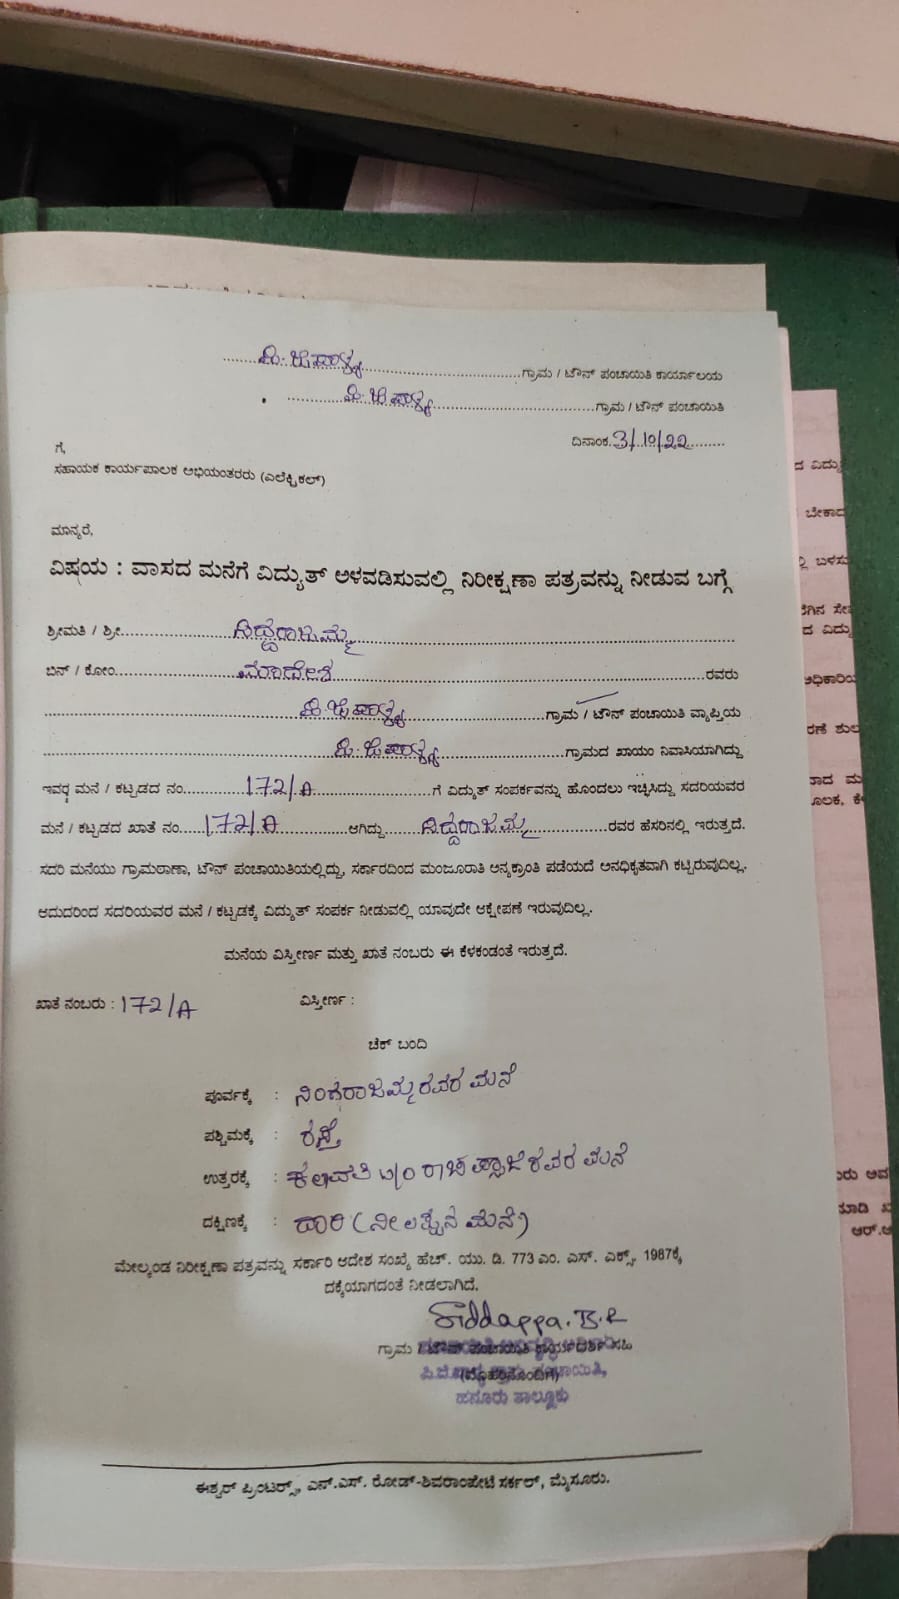 ಪಿ.ಜಿ.ಪಾಳ್ಯ ಗ್ರಾಮ / ಟೌನ್ ಪಂಚಾಯಿತಿ ಕಾರ್ಯಾಲಯ
ಪಿ.ಜಿ.ಪಾಳ್ಯ ಗ್ರಾಮ / ಟೌನ್ ಪಂಚಾಯಿತಿ
ದಿನಾಂಕ. 3/10/22
ಗೆ,
ಸಹಾಯಕ ಕಾರ್ಯಪಾಲಕ ಅಭಿಯಂತರರು (ಎಲೆಕ್ಟ್ರಿಕಲ್)
ಮಾನ್ಯರೆ,
ವಿಷಯ : ವಾಸದ ಮನೆಗೆ ವಿದ್ಯುತ್ ಅಳವಡಿಸುವಲ್ಲಿ ನಿರೀಕ್ಷಣಾ ಪತ್ರವನ್ನು ನೀಡುವ ಬಗ್ಗೆ
ಶ್ರೀಮತಿ / ಶ್ರೀ ಸಿದ್ದರಾಜಮ್ಮ
ಬಿನ್ / ಕೋಂ. ಮಾದೇಶ ರವರು
ಪಿ.ಜಿ.ಪಾಳ್ಯ ಗ್ರಾಮ / ಟೌನ್ ಪಂಚಾಯಿತಿ ವ್ಯಾಪ್ತಿಯ
ಪಿ.ಜಿ.ಪಾಳ್ಯ ಗ್ರಾಮದ ಖಾಯಂ ನಿವಾಸಿಯಾಗಿದ್ದು
ಇವರ ಮನೆ / ಕಟ್ಟಡದ ನಂ. 172/A ಗೆ ವಿದ್ಯುತ್ ಸಂಪರ್ಕವನ್ನು ಹೊಂದಲು ಇಚ್ಚಿಸಿದ್ದು ಸದರಿಯವರ
ಮನೆ / ಕಟ್ಟಡದ ಖಾತೆ ನಂ. 172/A ಆಗಿದ್ದು ಸಿದ್ದರಾಜಮ್ಮ ರವರ ಹೆಸರಿನಲ್ಲಿ ಇರುತ್ತದೆ.
ಸದರಿ ಮನೆಯು ಗ್ರಾಮಠಾಣಾ, ಟೌನ್ ಪಂಚಾಯಿತಿಯಲ್ಲಿದ್ದು, ಸರ್ಕಾರದಿಂದ ಮಂಜೂರಾತಿ ಅನ್ಯಕ್ರಾಂತಿ ಪಡೆಯದೆ ಅನಧಿಕೃತವಾಗಿ ಕಟ್ಟಿರುವುದಿಲ್ಲ.
ಆದುದರಿಂದ ಸದರಿಯವರ ಮನೆ / ಕಟ್ಟಡಕ್ಕೆ ವಿದ್ಯುತ್ ಸಂಪರ್ಕ ನೀಡುವಲ್ಲಿ ಯಾವುದೇ ಆಕ್ಷೇಪಣೆ ಇರುವುದಿಲ್ಲ.
ಮನೆಯ ವಿಸ್ತೀರ್ಣ ಮತ್ತು ಖಾತೆ ನಂಬರು ಈ ಕೆಳಕಂಡಂತೆ ಇರುತ್ತದೆ.
ಖಾತೆ ನಂಬರು : 172/A ವಿಸ್ತೀರ್ಣ :
ಚೆಕ್ ಬಂದಿ
ಪೂರ್ವಕ್ಕೆ : ನಿಂಗರಾಜಮ್ಮ ರವರ ಮನೆ
ಪಶ್ಚಿಮಕ್ಕೆ : ರಸ್ತೆ
ಉತ್ತರಕ್ಕೆ : ರವರ ಮನೆ
ದಕ್ಷಿಣಕ್ಕೆ : ದಾರಿ
ಮೇಲ್ಕಂಡ ನಿರೀಕ್ಷಣಾ ಪತ್ರವನ್ನು ಸರ್ಕಾರಿ ಆದೇಶ ಸಂಖ್ಯೆ ಹೆಚ್. ಯು. ಡಿ. 773 ಎಂ. ಎಸ್. ಎಕ್ಸ್, 1987ಕ್ಕೆ
ದಕ್ಕೆಯಾಗದಂತೆ ನೀಡಲಾಗಿದೆ.
Siddappa. B.R
ಗ್ರಾಮ / ಟೌನ್ ಪಂಚಾಯಿತಿ ಕಾರ್ಯದರ್ಶಿ ಸಹಿ
(ಮೊಹರಿನೊಂದಿಗೆ)
ಹನೂರು ತಾಲ್ಲೂಕು
ಈಶ್ವರ್ ಪ್ರಿಂಟರ್ಸ್, ಎನ್.ಎಸ್. ರೋಡ್-ಶಿವರಾಂಪೇಟೆ ಸರ್ಕಲ್, ಮೈಸೂರು.